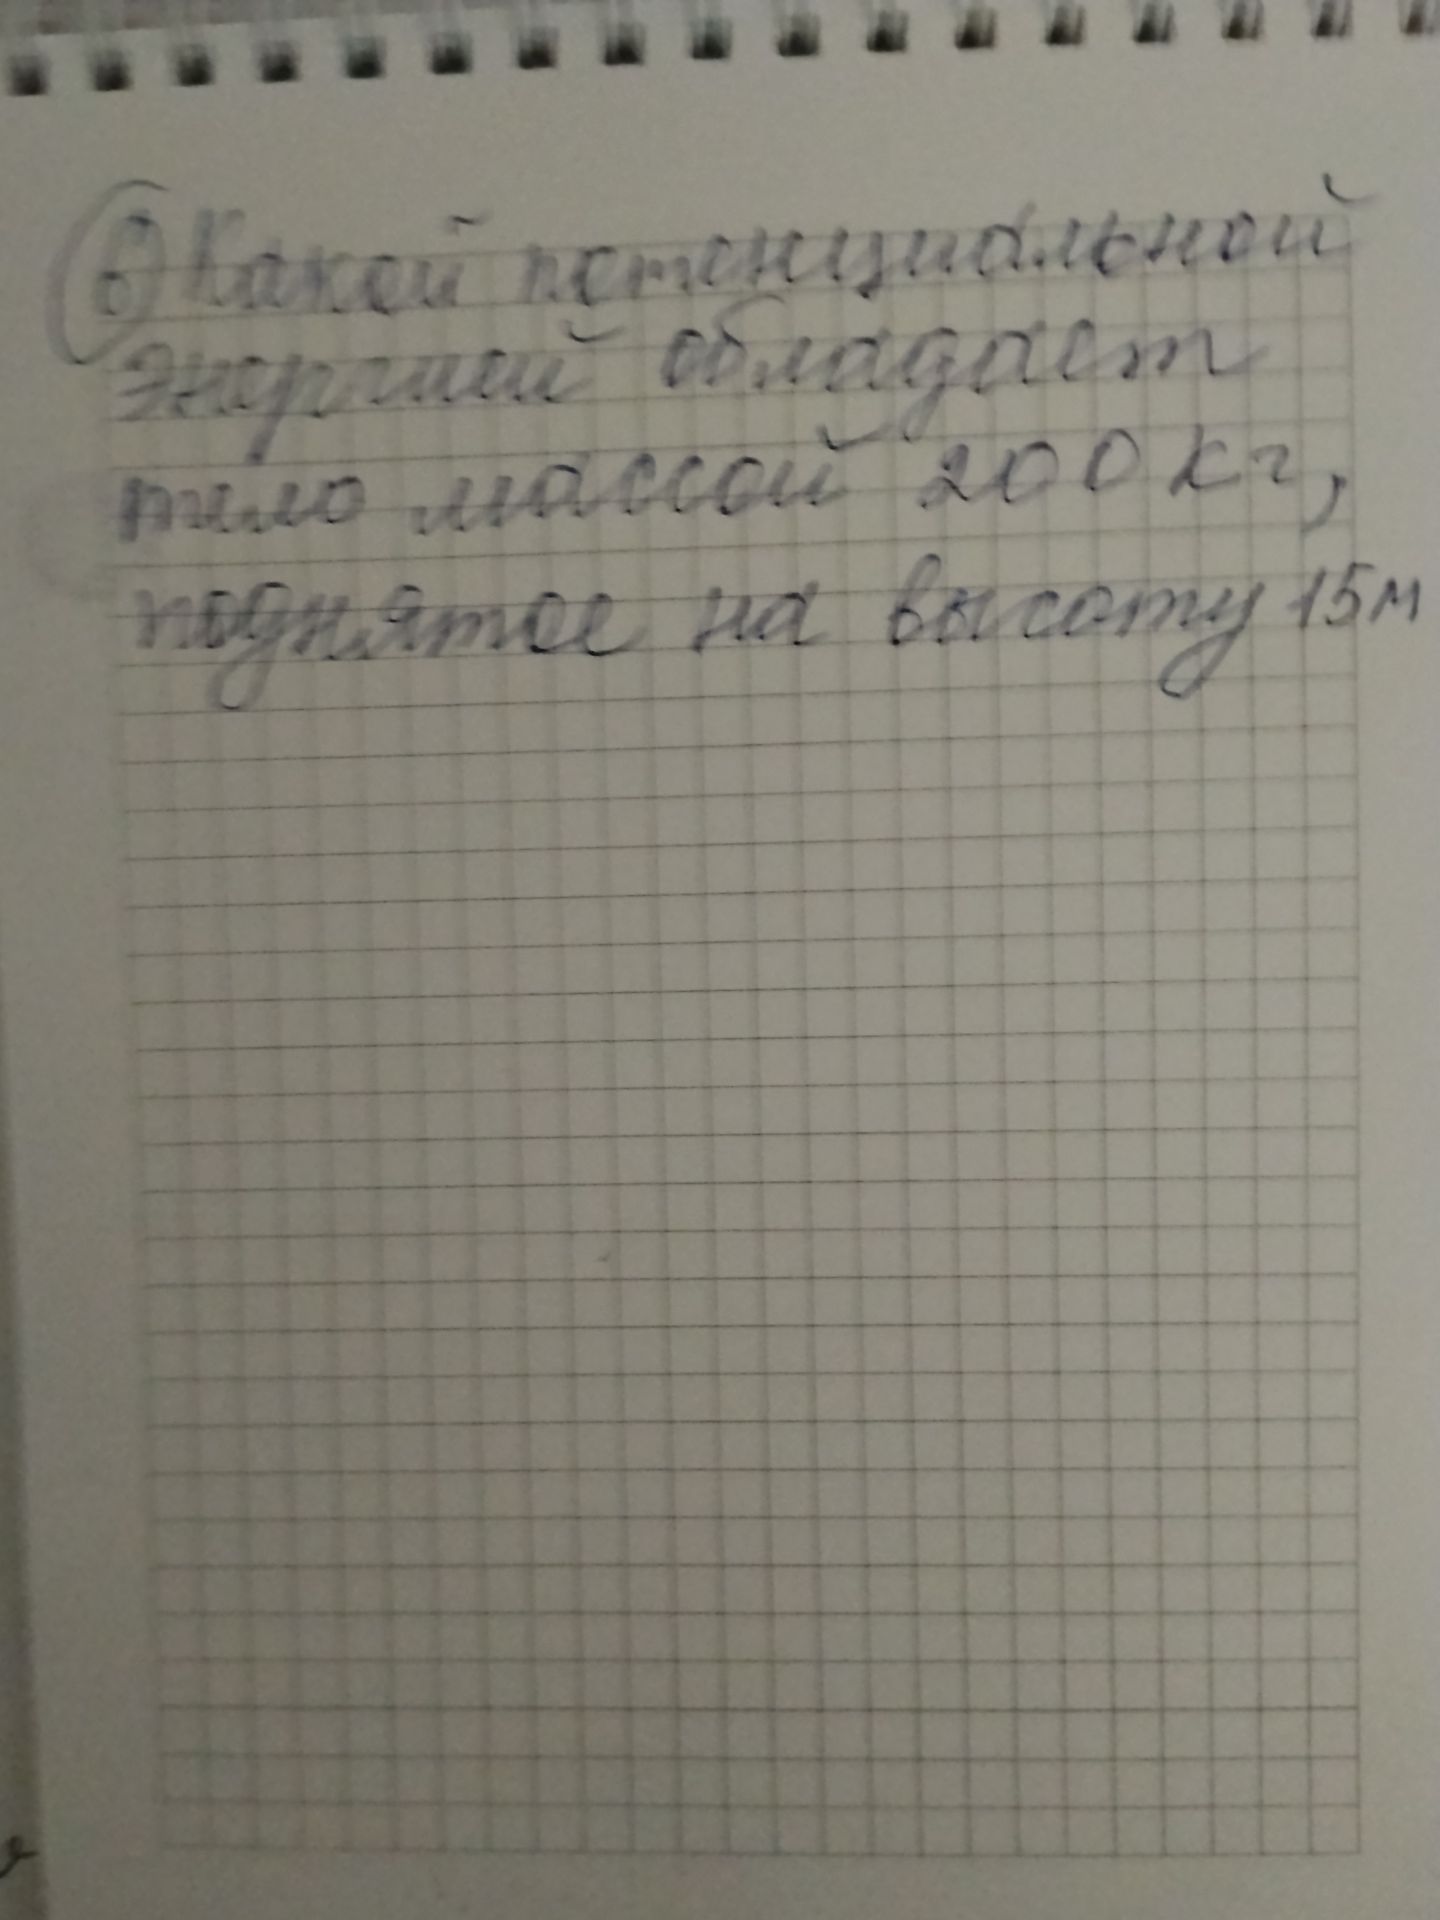 6) Какой потенциальной
энергией обладает
тело массой 200 кг,
поднятое на высоту 15м